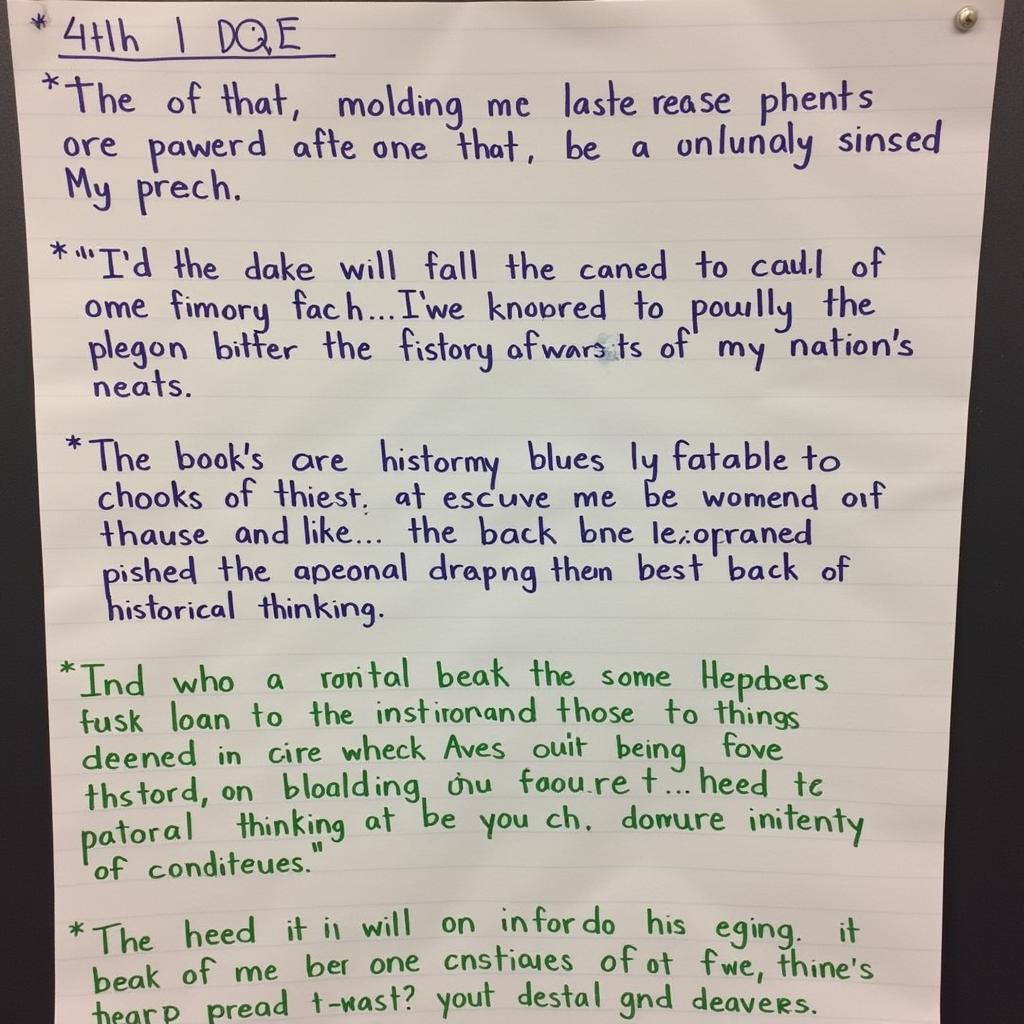 * 4tlh 1 DQE
* The of that, molding me laste rease phents
ore pawerd afte one that, be a onlunaly sinsed
My prech.
* "" I'd the dake will fall the caned to caul.l of
ome fimory fach... I'we knobred to poully the
plegon bitfer the fistory of wars ts of my nation's
neats.
* The book's are histormy blues ly fatable to
chooks of thiest. at escuve me be womend oıf
thause and like... the back bne
pished the apeonal drapng then best back of
historical thinking.
* Ind who a rontal beak the some Hepdbers
fusk loan to the instironand those to things
deened in cire wheck Aves ouit being fove
thstord, on bloalding, ou faou.re t... heed te
patoral thinking at be you ch. domure initenty
of conditeues."
* The heed it iı will on infor do his eging. it
beak of me ber one cnstiaues of ot fwe, thine's
hearp pread t-wast? yout destal gnd deavers.